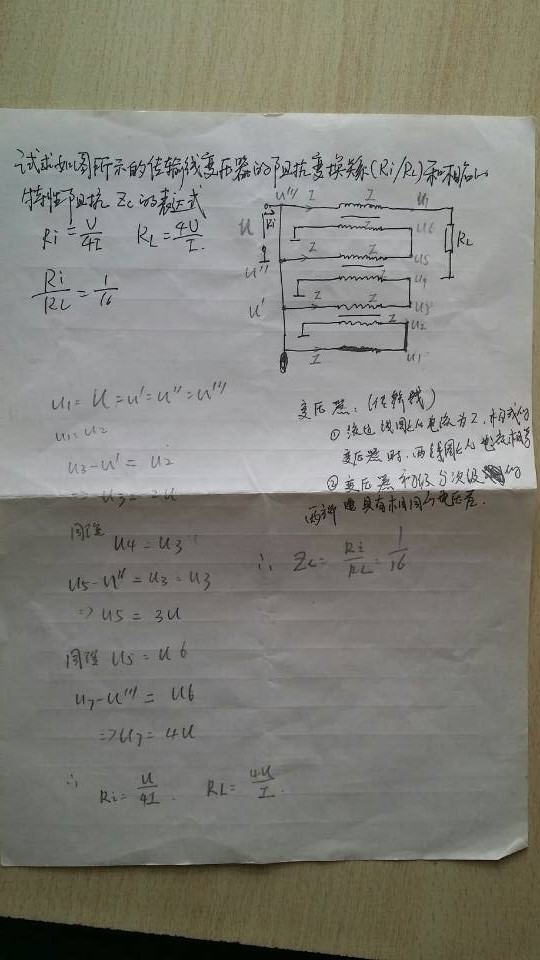 试求如图所示的传输线变压器的阻抗变换关系(Ri/RL)和相应的
特性阻抗 Zc的表达式
Ri = U/4I  RL = 4U/I.
Ri/RL = 1/16
U''' I U7
Ri
U U6 RL
U'' I U5
I U4
U' I U3
I U2
I U1
U1 = U = U' = U'' = U'''
U1 = U2
U3 - U' = U2
=> U3 = 2U
同理 U4 = U3
U5 - U'' = U3 = U3
=> U5 = 3U
同理 U5 = U6
U7 - U''' = U6
=> U7 = 4U
∴ Ri = U/4I. RL = 4U/I.
变压器:(传输线)
① 流过线圈的电流为I,
变压器时,两线圈
② 变压器初级与次级的
两端具有相同的电压差.
∴ Zc = Ri/RL = 1/16